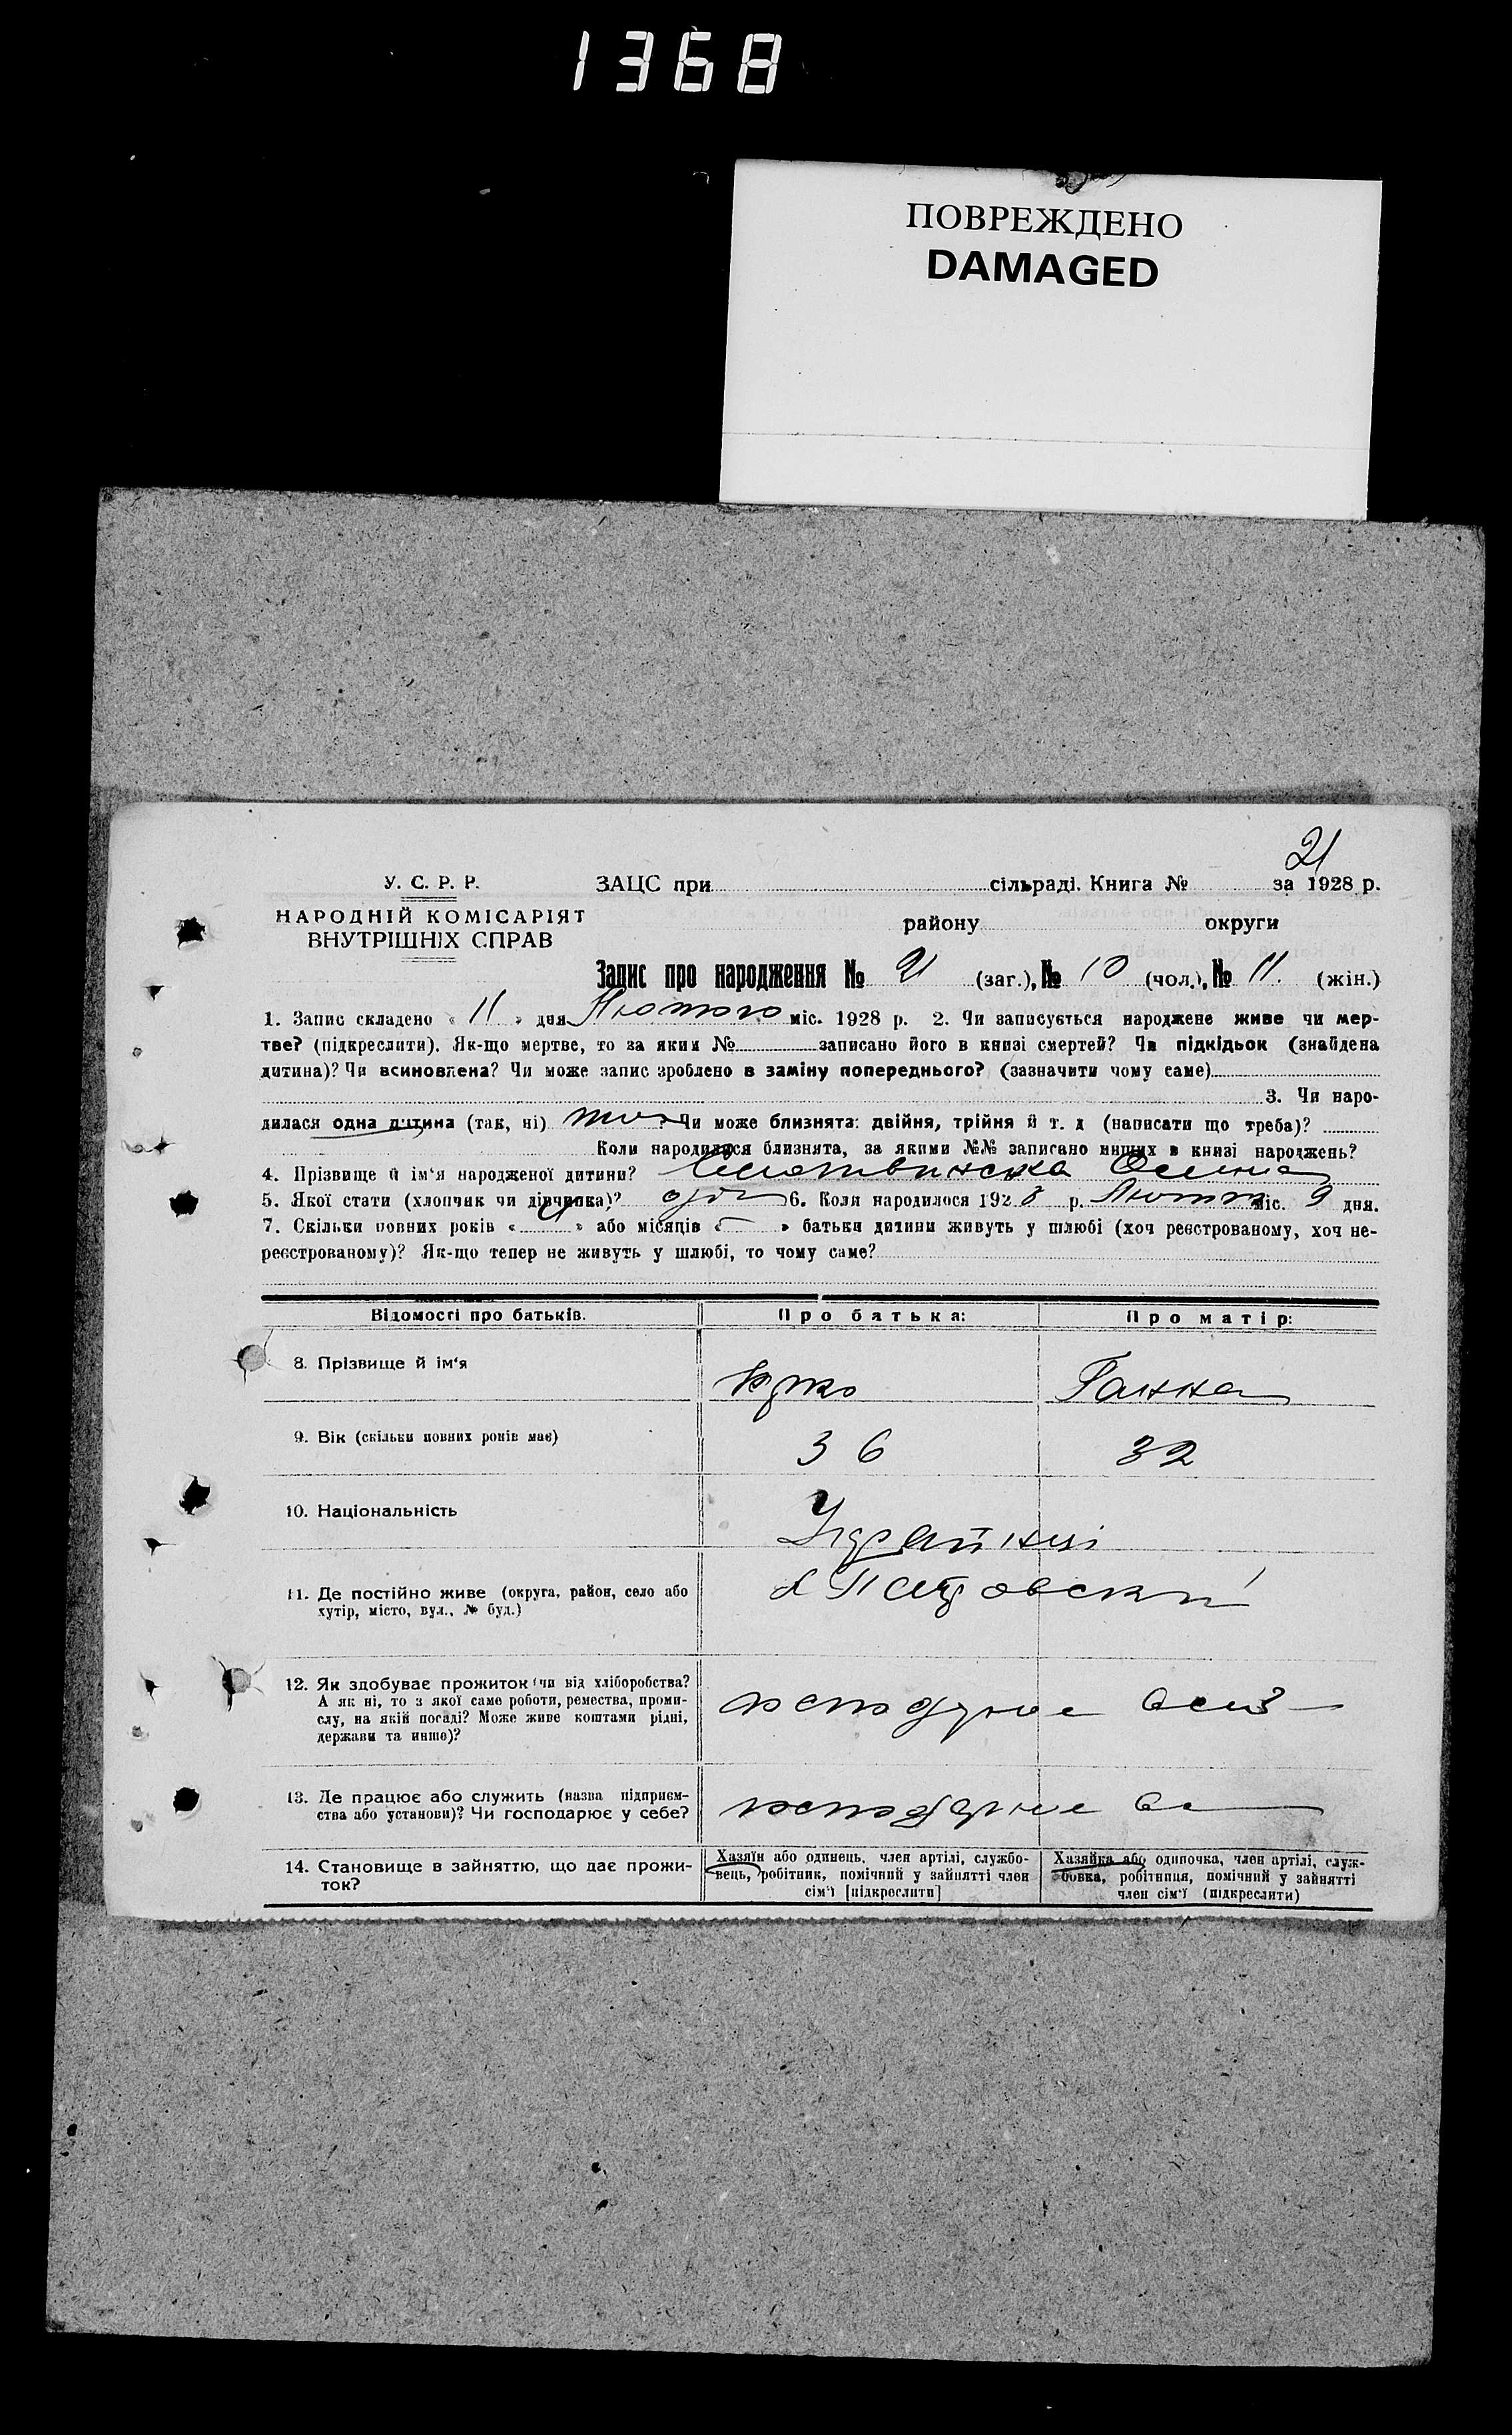 1368
ПОВРЕЖДЕНО
DAMAGED
21
У. С. Р. Р.
ЗАЦС при сільраді. Книга № за 1928 р.
НАРОДНІЙ КОМІСАРІЯТ
ВНУТРІШНІХ СПРАВ
району округи
Запис про народження № 21 (заг.), № 10 (чол.), № 11. (жін.)
1. Запис складено « 11 » дня Лютого міс. 1928 р. 2. Чи записується народжене живе чи мер-
тве? (підкреслити). Як-що мертве, то за яким № записано його в книзі смертей? Чи підкідьок (знайдена
дитина)? Чи всиновлена? Чи може запис зроблено в заміну попереднього? (зазначити чому саме)
3. Чи наро-
дилася одна дитина (так, ні) Чи може близнята: двійня, трійня й т. д (написати що треба)?
Коли народилися близнята, за якими №№ записано инших в книзі народжень?
4. Прізвище й ім'я народженої дитини?
5. Якої стати (хлопчик чи дівчинка)? 6. Коли народилося 1928 р. міс. 9 дня.
7. Скільки повних років « » або місяців « — » батьки дитини живуть у шлюбі (хоч реєстрованому, хоч не-
реєстрованому)? Як-що тепер не живуть у шлюбі, то чому саме?
Відомості про батьків. Про батька: Про матір:
8. Прізвище й ім'я Ганна
9. Вік (скільки повних років має) 36 32
10. Національність Українці
11. Де постійно живе (округа, район, село або
хутір, місто, вул., № буд.)
12. Як здобуває прожиток (чи від хліборобства?
А як ні, то з якої саме роботи, ремества, проми-
слу, на якій посаді? Може живе коштами рідні,
держави та инше)?
13. Де працює або служить (назва підприєм-
ства або установи)? Чи господарює у себе?
14. Становище в зайняттю, що дає прожи-
ток?
Хазяїн або одинець, член артілі, службо-
вець, робітник, помічний у зайнятті член
сім'ї [підкреслити]
Хазяйка або одиночка, член артілі, служ-
бовка, робітниця, помічний у зайнятті
член сім'ї (підкреслити)